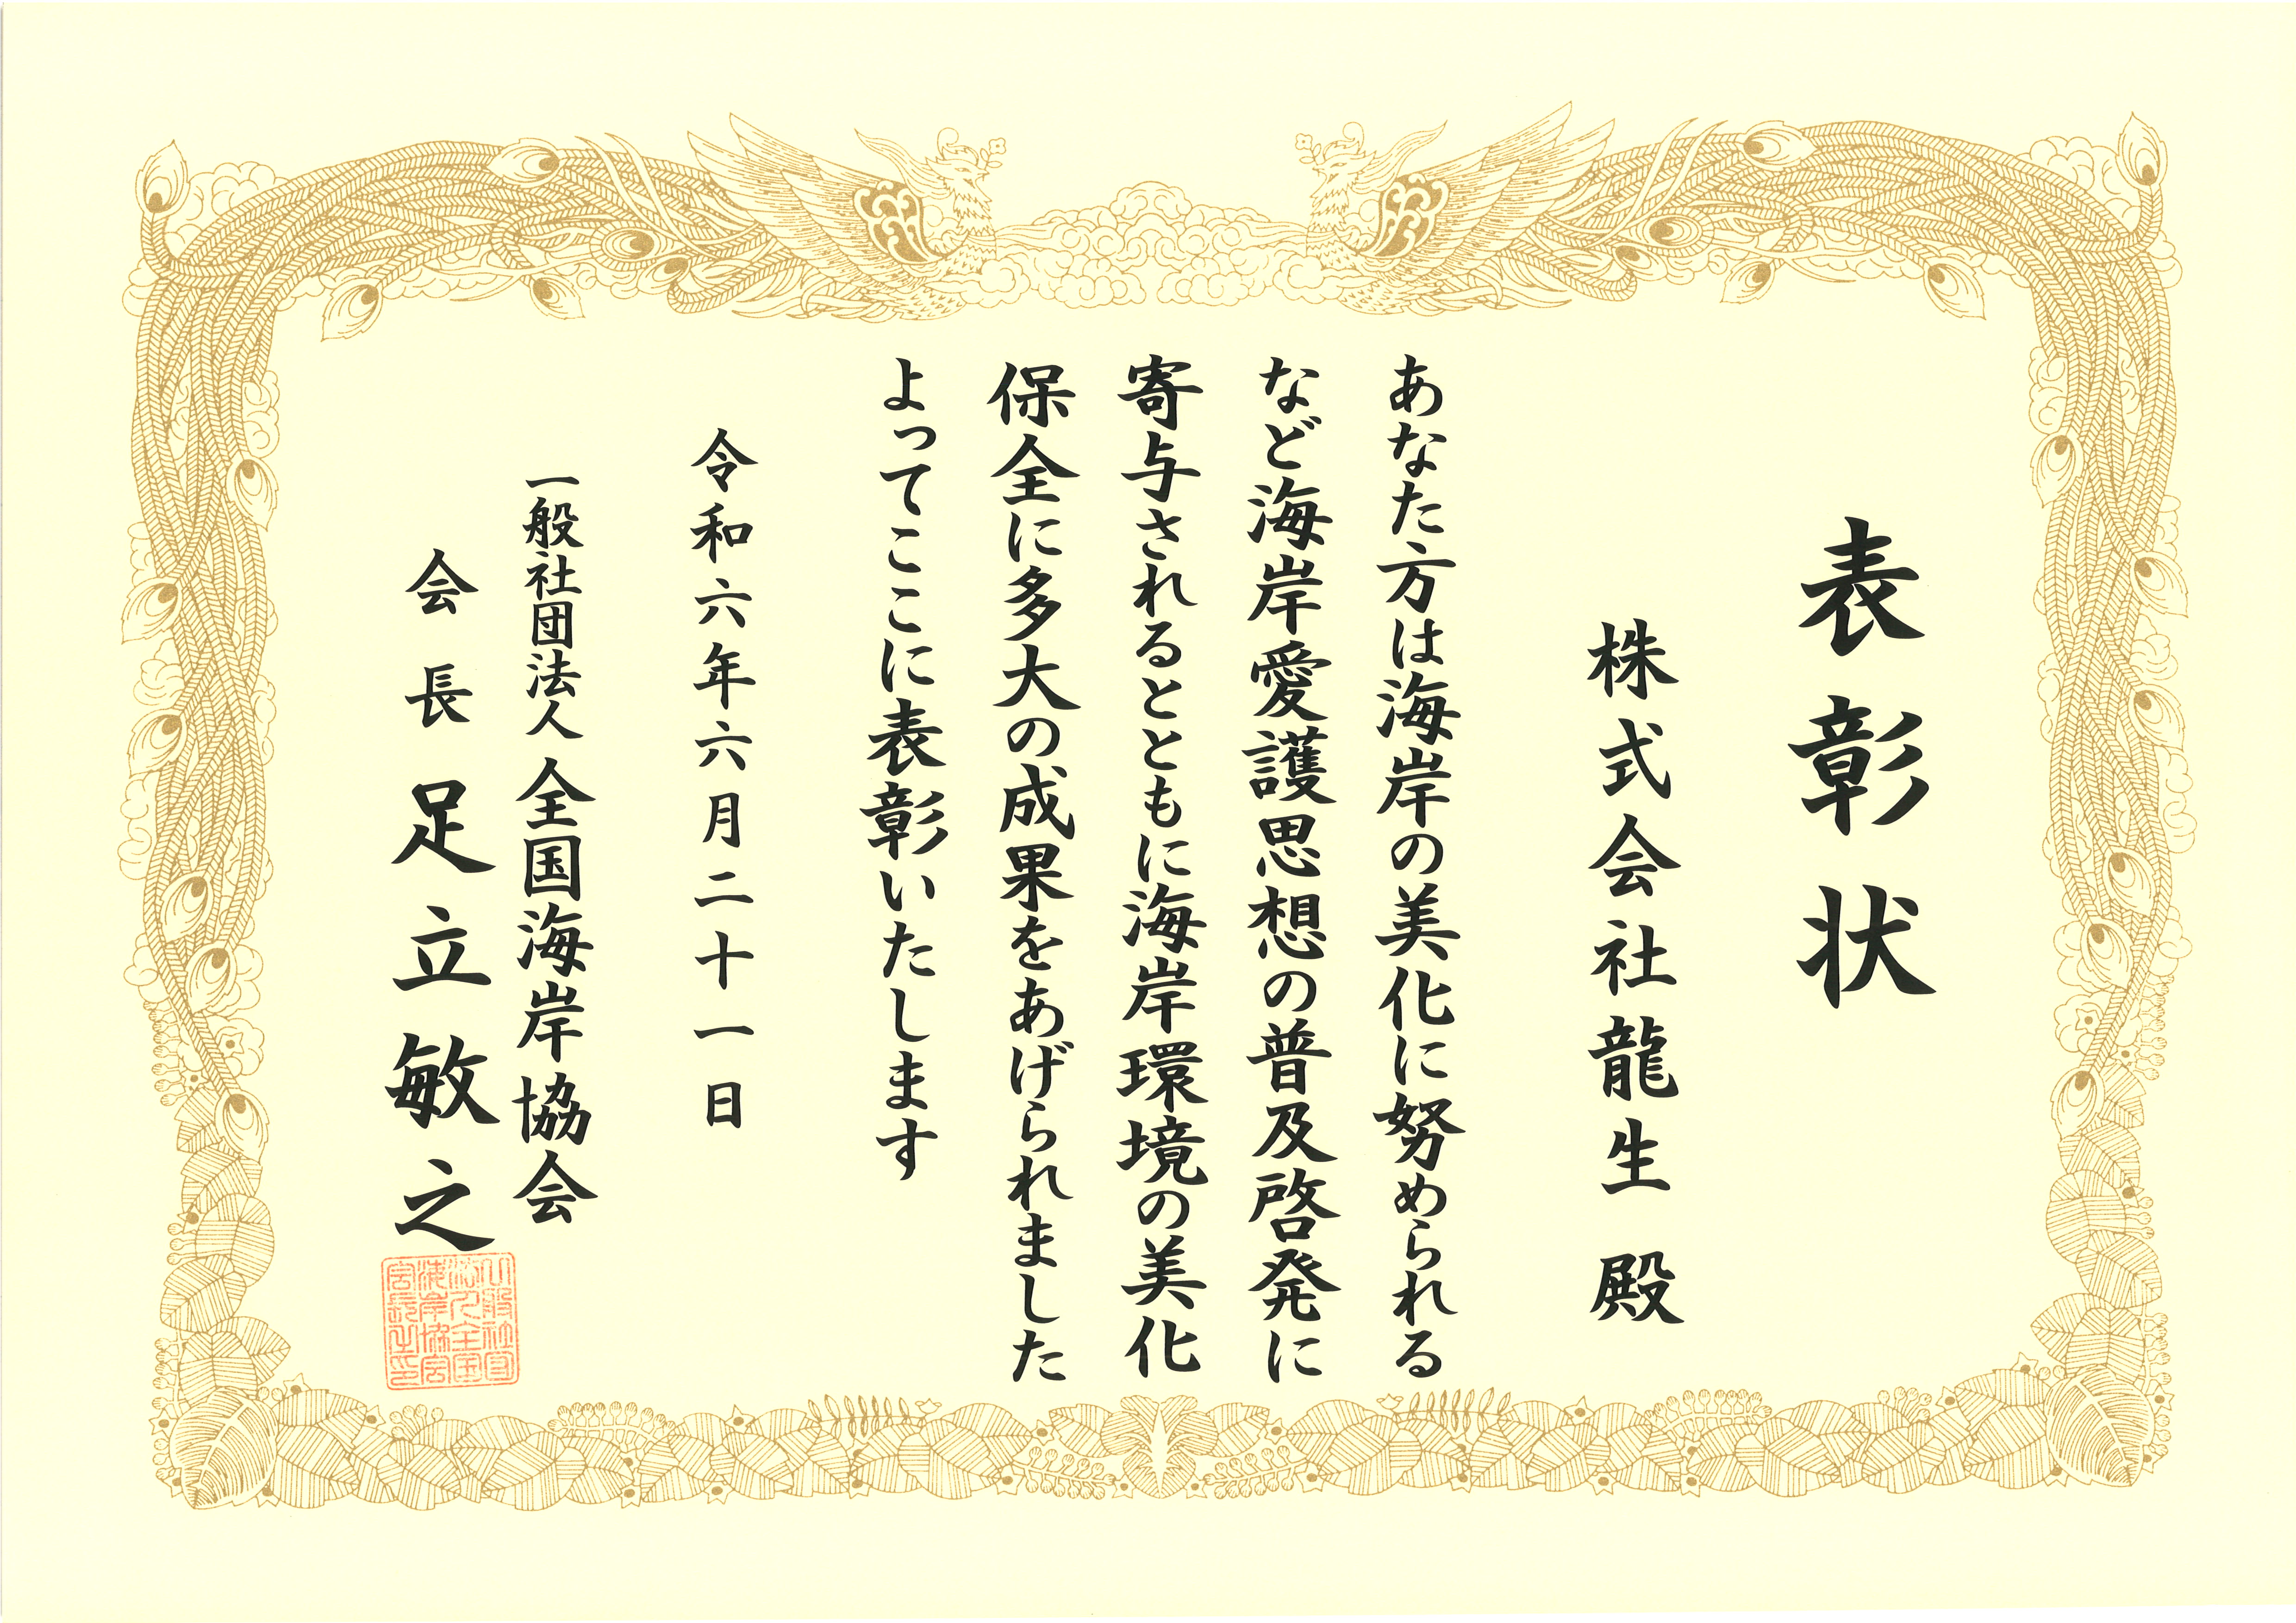 表彰状
株式会社龍生 殿
あなた方は海岸の美化に努められる
など海岸愛護思想の普及啓発に
寄与されるとともに海岸環境の美化
保全に多大の成果をあげられました
よってここに表彰いたします
令和六年六月二十一日
一般社団法人 全国海岸協会
会長 足立敏之
一般社団
法人全国
海岸協会
会長之印